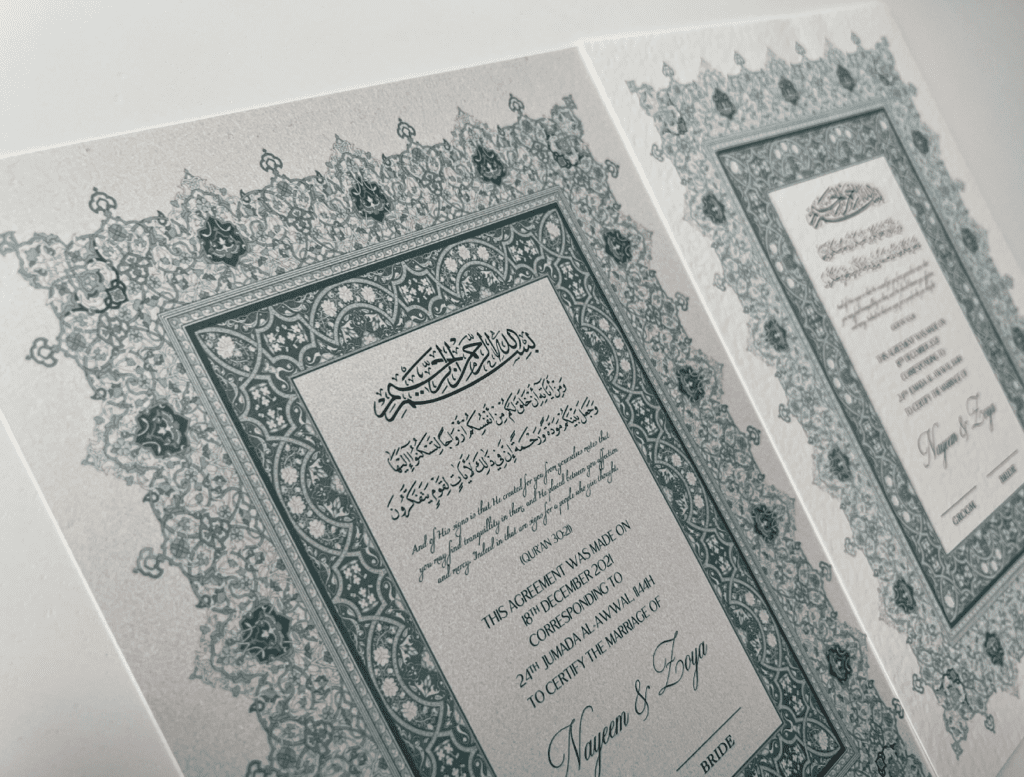 بسم الله الرحمن الرحيم
وَمِنْ آيَاتِهِ أَنْ خَلَقَ لَكُم مِّنْ أَنفُسِكُمْ أَزْوَاجًا لِّتَسْكُنُوا إِلَيْهَا
وَجَعَلَ بَيْنَكُم مَّوَدَّةً وَرَحْمَةً إِنَّ فِي ذَٰلِكَ لَآيَاتٍ لِّقَوْمٍ يَتَفَكَّرُونَ
And of His signs is that He created for you from yourselves mates that
you may find tranquillity in them, and He placed between you affection
and mercy. Indeed in that are signs for a people who give thought.
(QURAN 30:21)
THIS AGREEMENT WAS MADE ON
18TH DECEMBER 2021
CORRESPONDING TO
24TH JUMADA AL-AWWAL, 1144H
TO CERTIFY THE MARRIAGE OF
Nayeem & Zoya
BRIDE
THIS AGREEMENT WAS MADE ON
18TH DECEMBER 2021
CORRESPONDING TO
TO CERTIFY THE MARRIAGE OF
Nayeem & Zoya
GROOM BRIDE